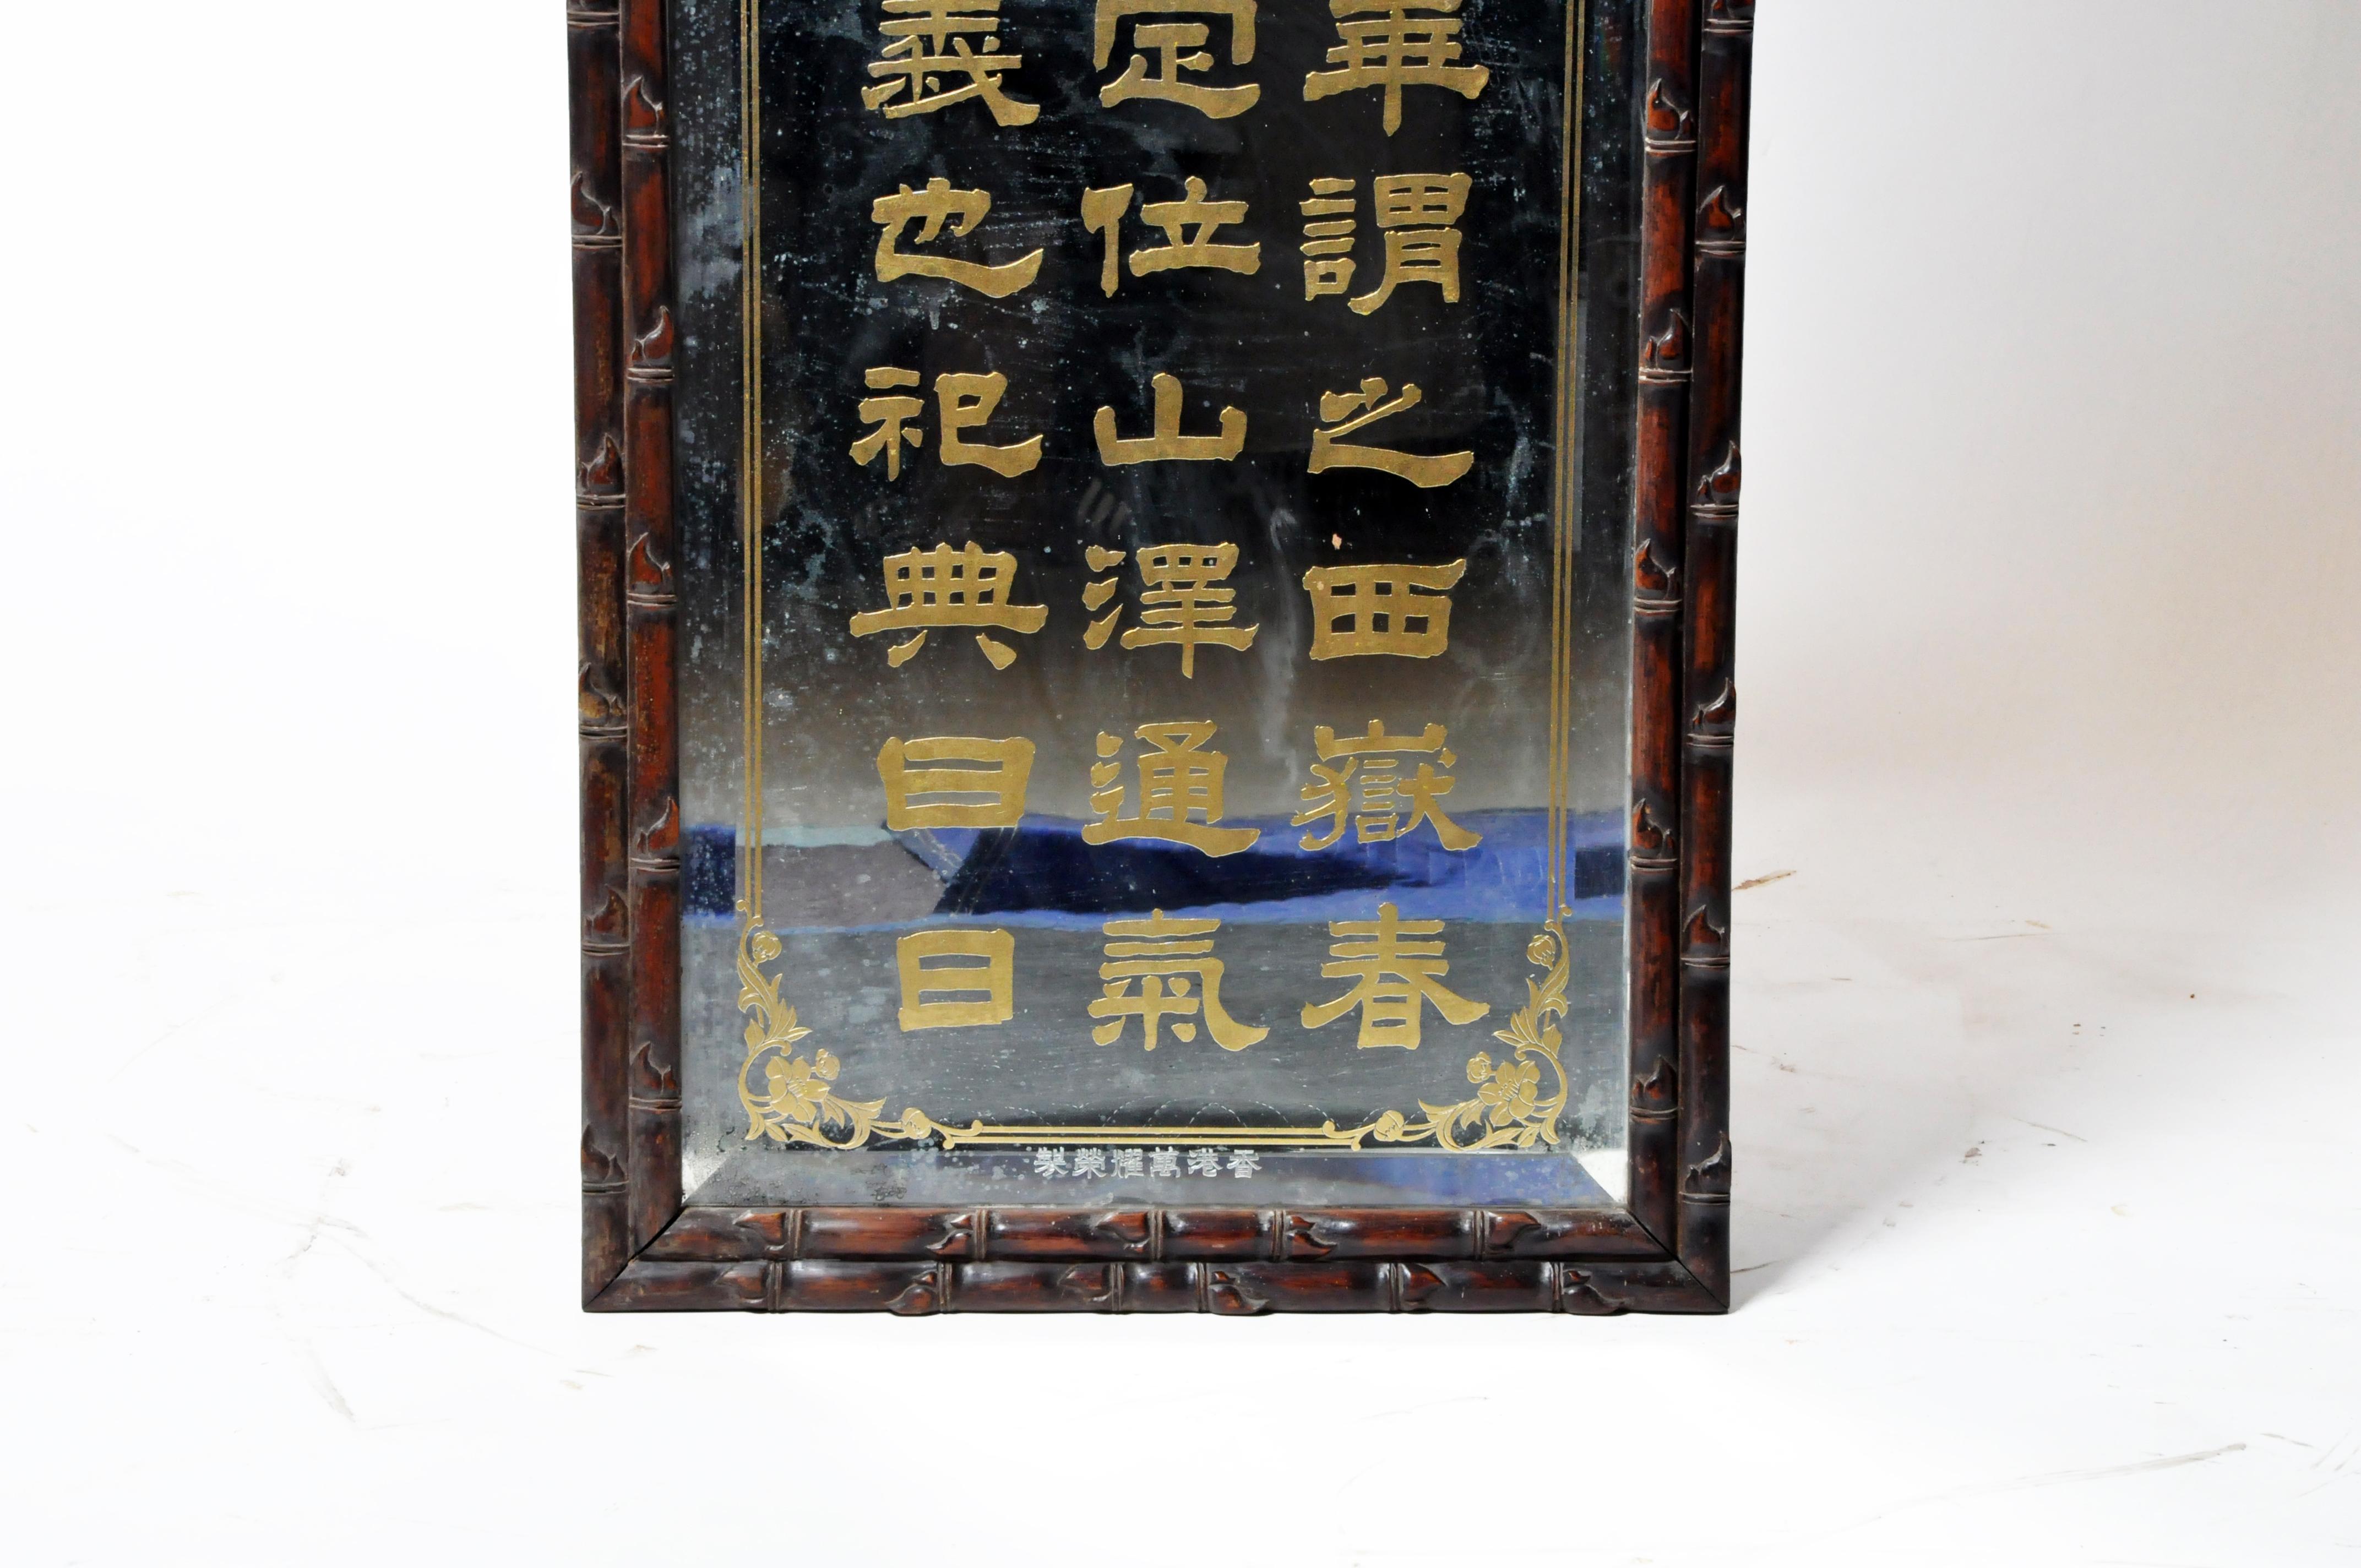 華謂之西嶽春
定位山澤通氣
義也祀典曰日
香港萬耀榮製